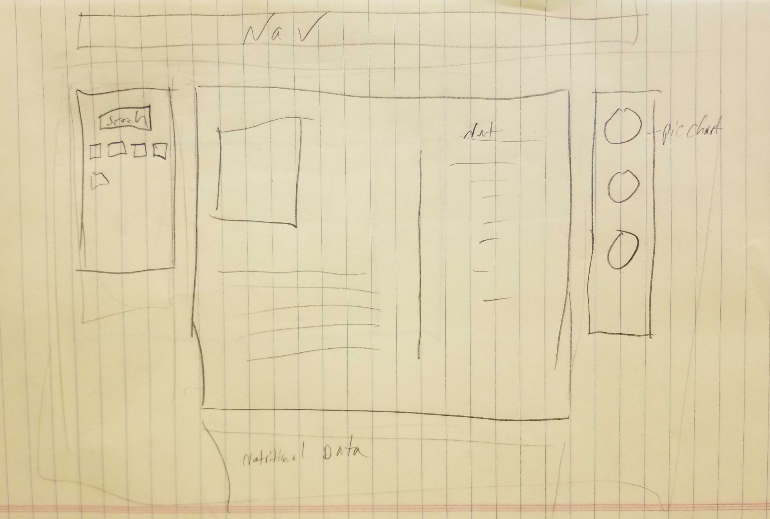 Nav
Search
Nut
pie chart
Nutritional Data